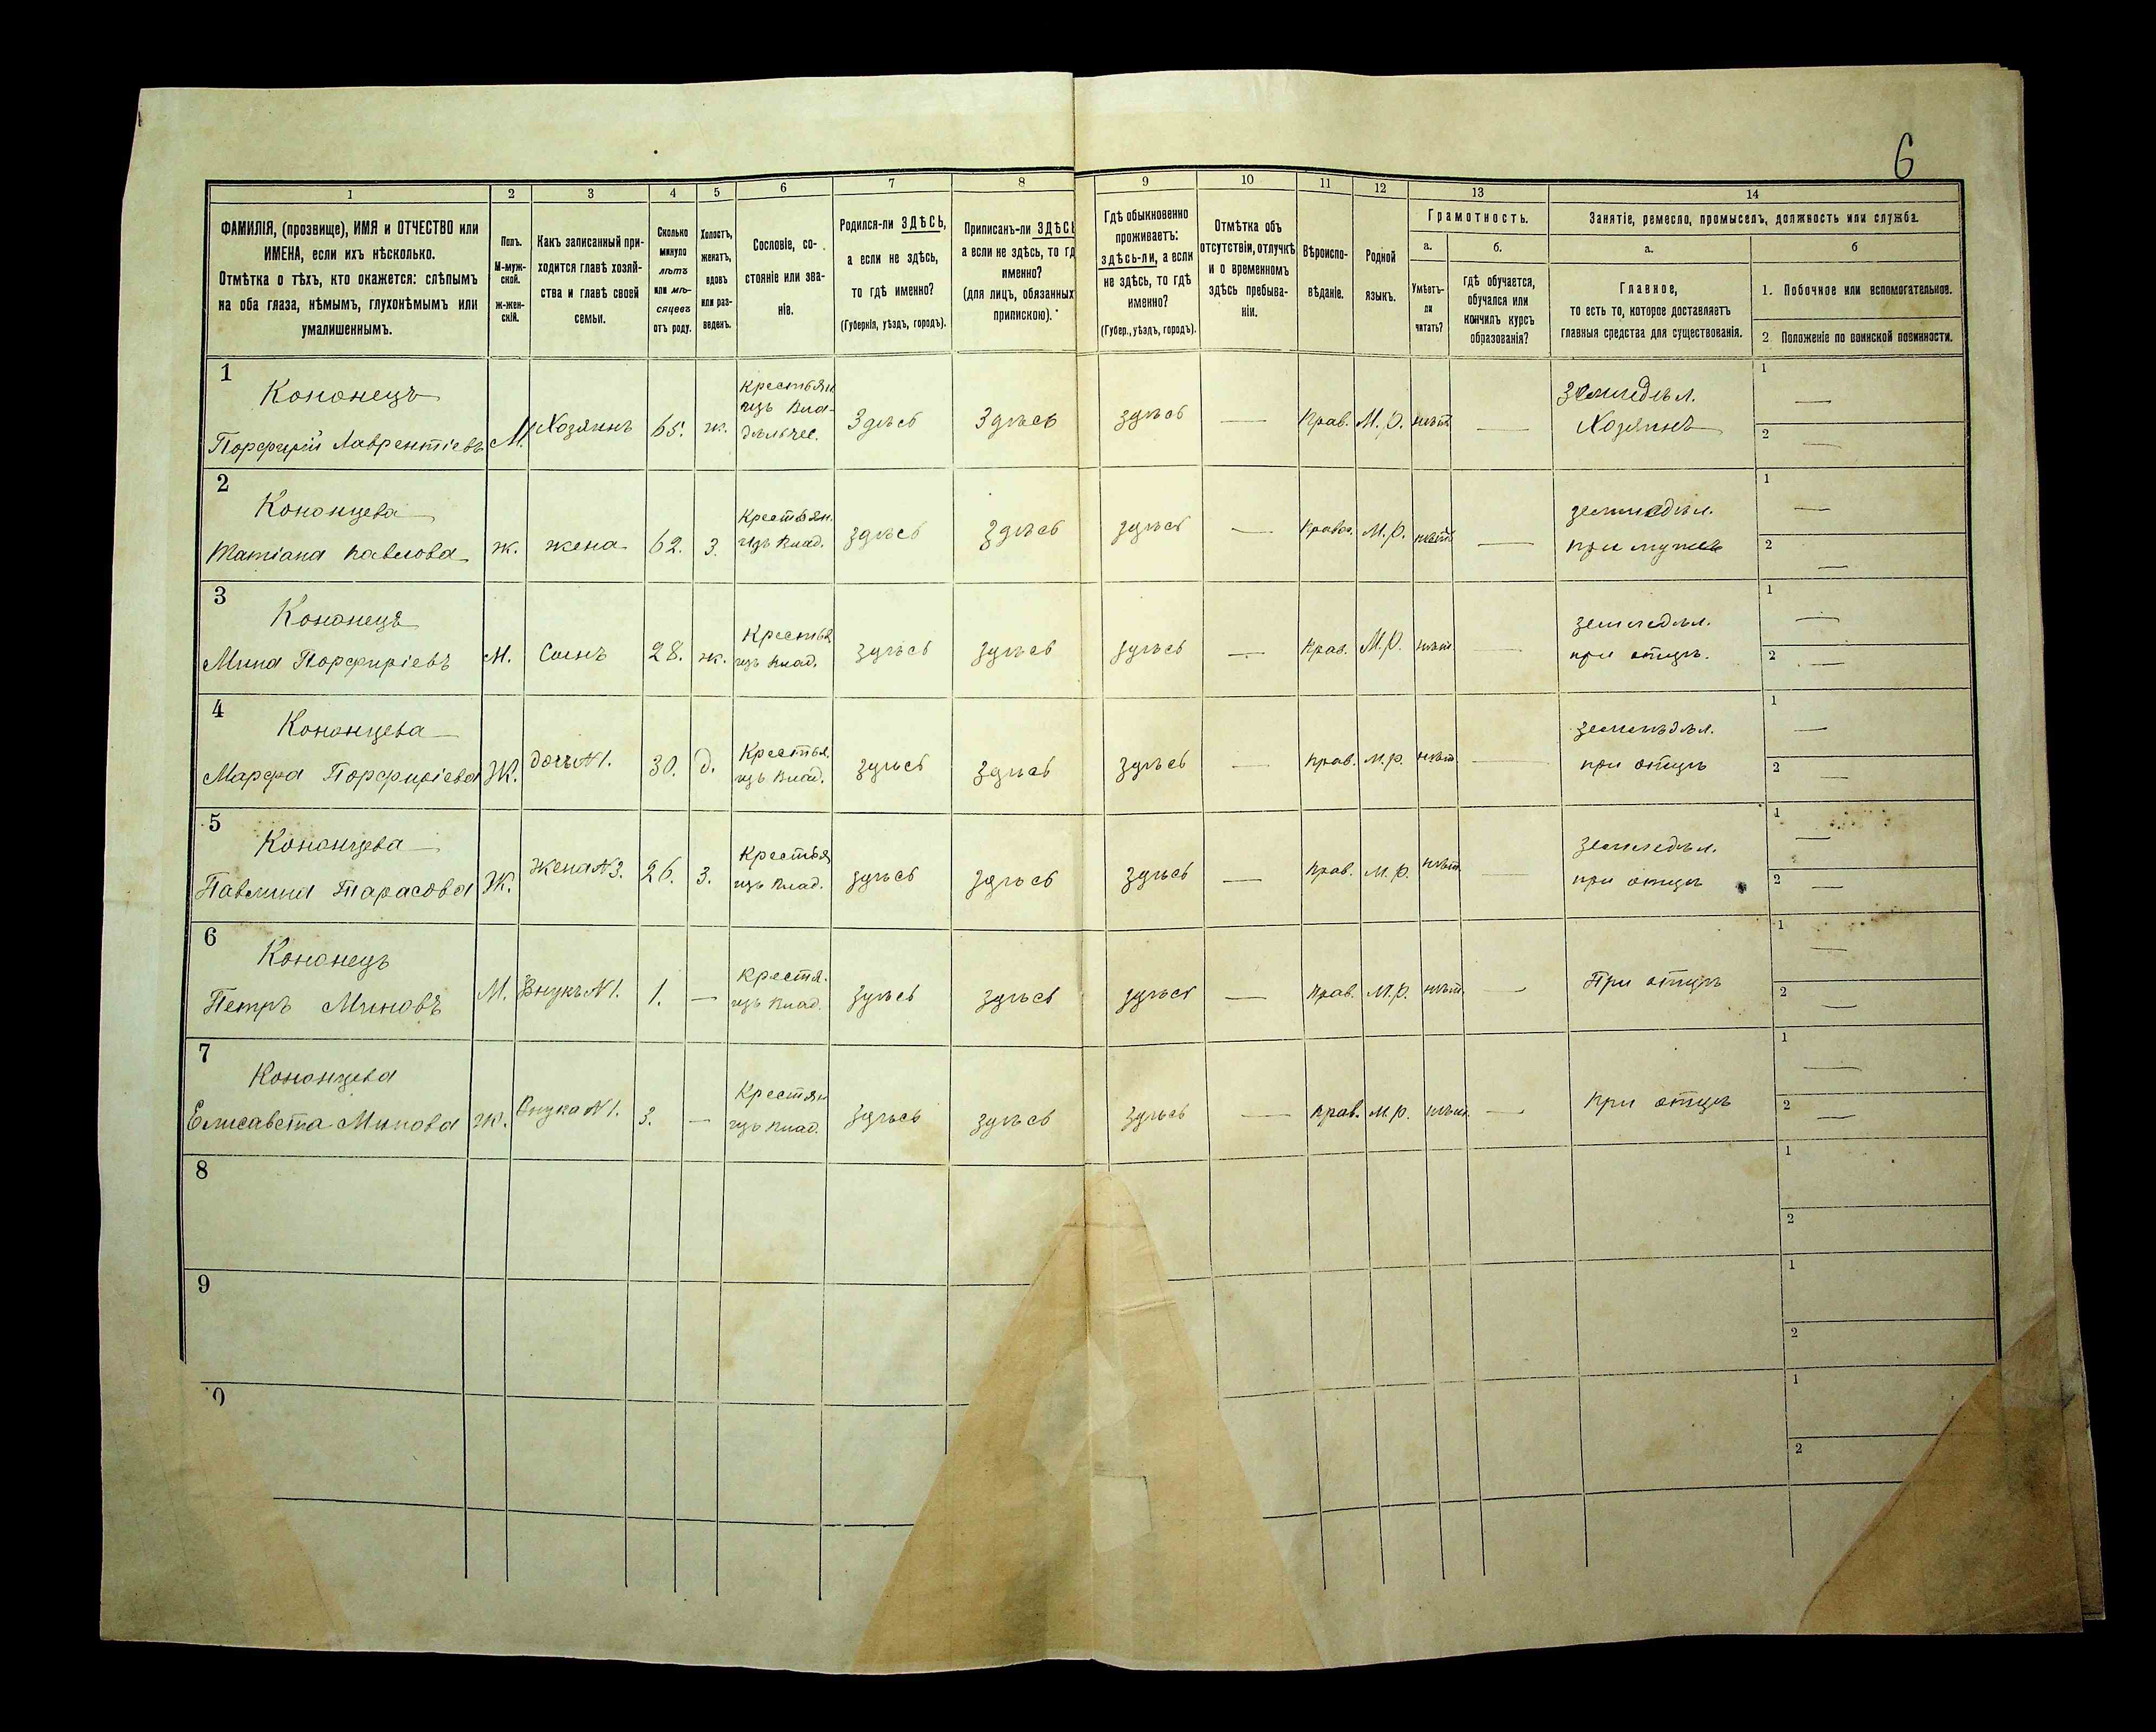 6
1 2 3 4 5 6 7 8 9 10 11 12 13 14
ФАМИЛІЯ, (прозвище), ИМЯ и ОТЧЕСТВО или
ИМЕНА, если ихъ нѣсколько.
Отмѣтка о тѣхъ, кто окажется: слѣпымъ
на оба глаза, нѣмымъ, глухонѣмымъ или
умалишеннымъ.
Полъ.
М-муж-
ской.
ж-жен-
скій.
Какъ записанный при-
ходится главѣ хозяй-
ства и главѣ своей
семьи.
Сколько
минуло
лѣтъ
или мѣ-
сяцевъ
отъ роду.
Холостъ,
женатъ,
вдовъ
или раз-
веденъ.
Сословіе, со-
стояніе или зва-
ніе.
Родился-ли ЗДѢСЬ,
а если не здѣсь,
то гдѣ именно?
(Губернія, уѣздъ, городъ).
Приписанъ-ли ЗДѢСЬ
а если не здѣсь, то гд
именно?
(для лицъ, обязанных
припискою).
Гдѣ обыкновенно
проживаетъ:
здѣсь-ли, а если
не здѣсь, то гдѣ
именно?
(Губер., уѣздъ, городъ).
Отмѣтка объ
отсутствіи, отлучкѣ
и о временномъ
здѣсь пребыва-
ніи.
Вѣроиспо-
вѣданіе.
Родной
языкъ.
Грамотность.
а. б.
Умѣетъ-
ли
читать?
Гдѣ обучается,
обучался или
кончилъ курсъ
образованія?
Занятіе, ремесло, промыселъ, должность или служба.
а. б
Главное,
то есть то, которое доставляетъ
главныя средства для существованія.
1. Побочное или вспомогательное.
2. Положеніе по воинской повинности.
1 Кононецъ
Порфирій Лаврентіевъ
М. Хозяинъ 65. ж.
крестьян
изъ вла-
дѣльчес.
Здѣсь Здѣсь здѣсь — Прав. М. р. нѣтъ —
земледѣл.
Хозяинъ
1 —
2 —
2 Кононцева
Татіана Павлова
ж. жена 62. з.
Крестьян.
изъ Влад.
здѣсь здѣсь здѣсь — Правос. М. р. нѣтъ —
земледѣл.
при мужѣ
1 —
2 —
3 Кононецъ
Мина Порфиріевъ
М. Сынъ 28. ж.
Крестья
изъ Влад.
здѣсь здѣсь здѣсь — Прав. М. р. нѣт —
земледѣл.
при отцѣ.
1 —
2 —
4 Кононцева
Марфа Порфиріева
Ж. дочь №1. 30. д.
Крестья.
изъ Влад.
здѣсь здѣсь здѣсь — Прав. М. р. нѣт —
земледѣл.
при отцѣ
1 —
2 —
5 Кононцева
Павлина Тарасова
Ж. Жена №3. 26. з.
Крестья
изъ Влад.
здѣсь здѣсь здѣсь — Прав. М. р. нѣт —
земледѣл.
при отцѣ
1 —
2 —
6 Кононецъ
Петръ Миновъ
М. Внукъ №1. 1. —
Крестя.
изъ Влад.
здѣсь здѣсь здѣсь — Прав. М. р. нѣт. —
При отцѣ
1 —
2 —
7 Кононцева
Елисавета Минова
ж. Внука №1. 3. —
Крестян
изъ Влад.
здѣсь здѣсь здѣсь — Прав. М. р. нѣт. —
при отцѣ
1 —
2 —
8
1
2
9
1
2
0
1
2